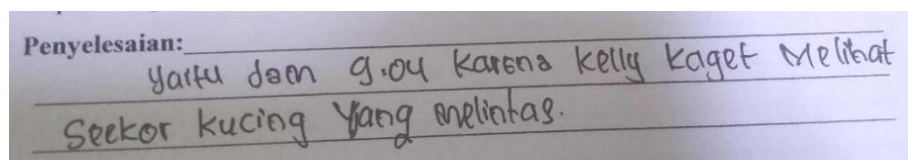 Penyelesaian:
Yaitu dam 9.04 Karena kelly kaget Melihat
Seekor kucing Yang melintas.